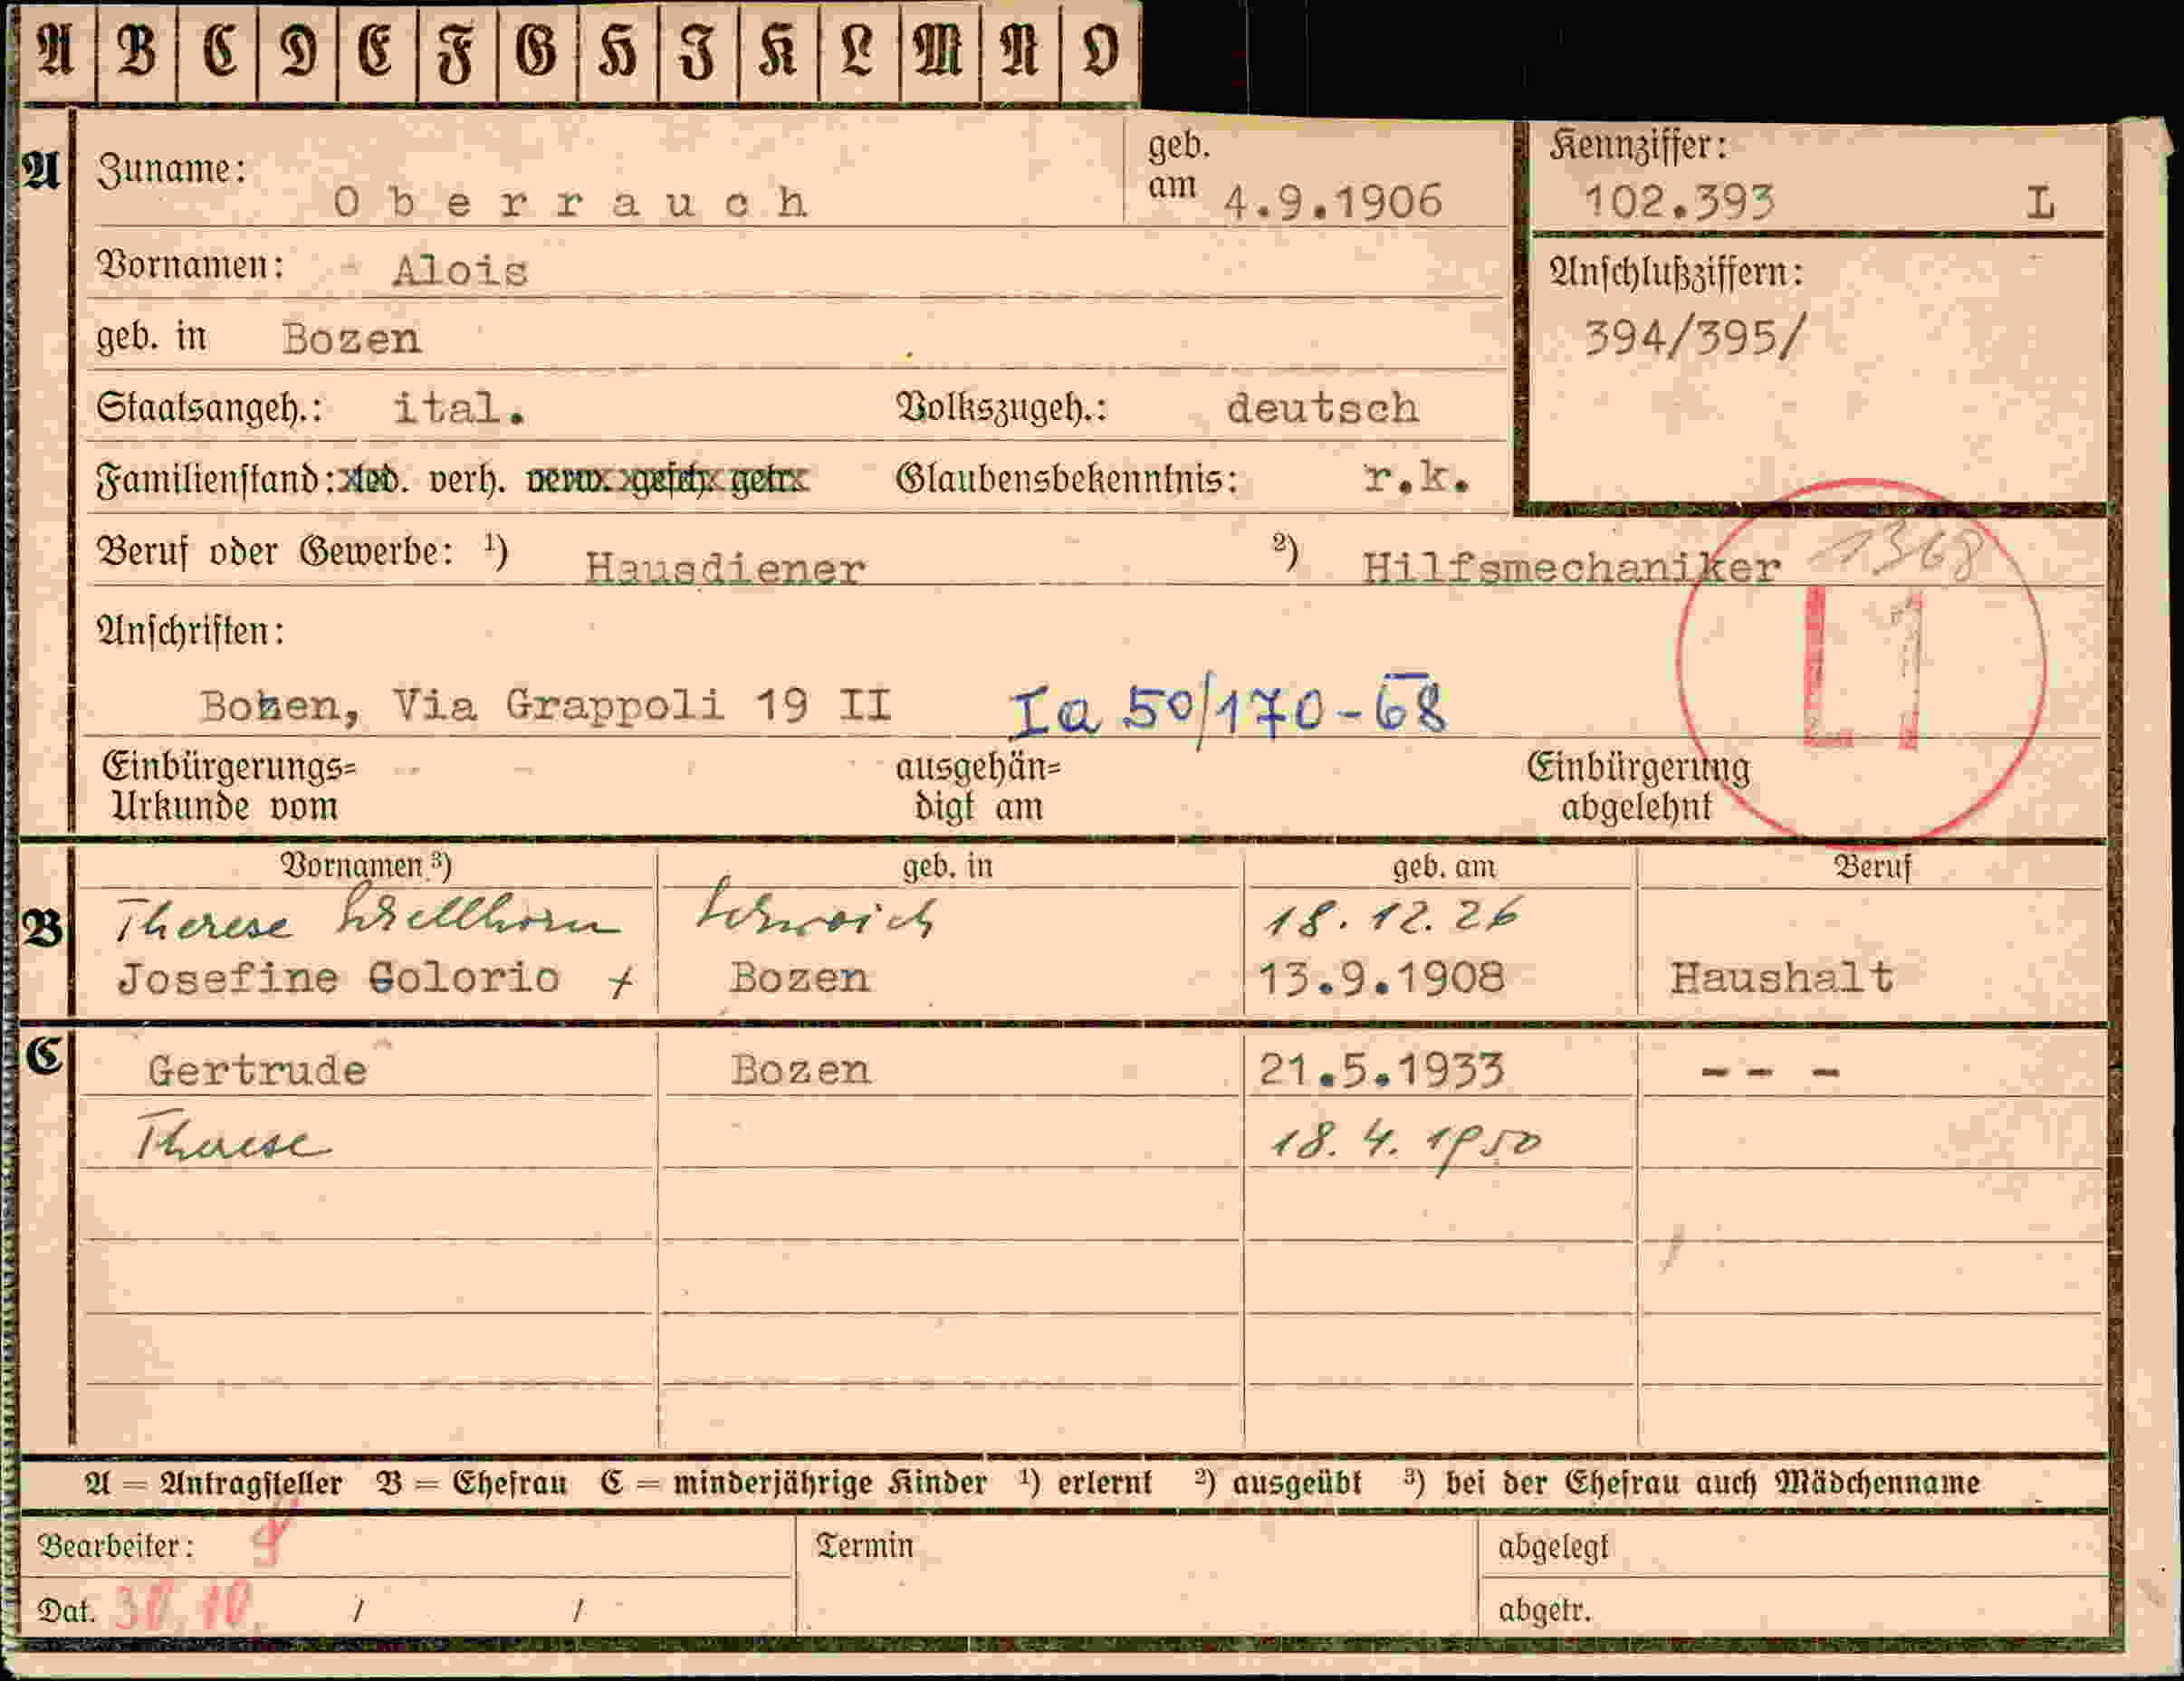 A B C D E F G H J K L M N O
A Zuname: Oberrauch geb. am 4.9.1906
Kennziffer: 102.393 L
Vornamen: Alois
Anschlußziffern:
394/395/
geb. in Bozen
Staatsangeh.: ital. Volkszugeh.: deutsch
Familienstand: led. verh. verw. gesch. getr. Glaubensbekenntnis: r.k.
Beruf oder Gewerbe: ¹) Hausdiener ²) Hilfsmechaniker 1368
L1
Anschriften:
Bozen, Via Grappoli 19 II Ia 50/170-68
Einbürgerungs=
Urkunde vom
ausgehän=
digt am
Einbürgerung
abgelehnt
Vornamen ³) geb. in geb. am Beruf
B Therese 18.12.26
Josefine Golorio + Bozen 13.9.1908 Haushalt
C Gertrude Bozen 21.5.1933 -- -
Therese 18. 4. 1950
A = Antragsteller B = Ehefrau C = minderjährige Kinder ¹) erlernt ²) ausgeübt ³) bei der Ehefrau auch Mädchenname
Bearbeiter: Termin abgelegt
Dat. 30.10. / / abgetr.